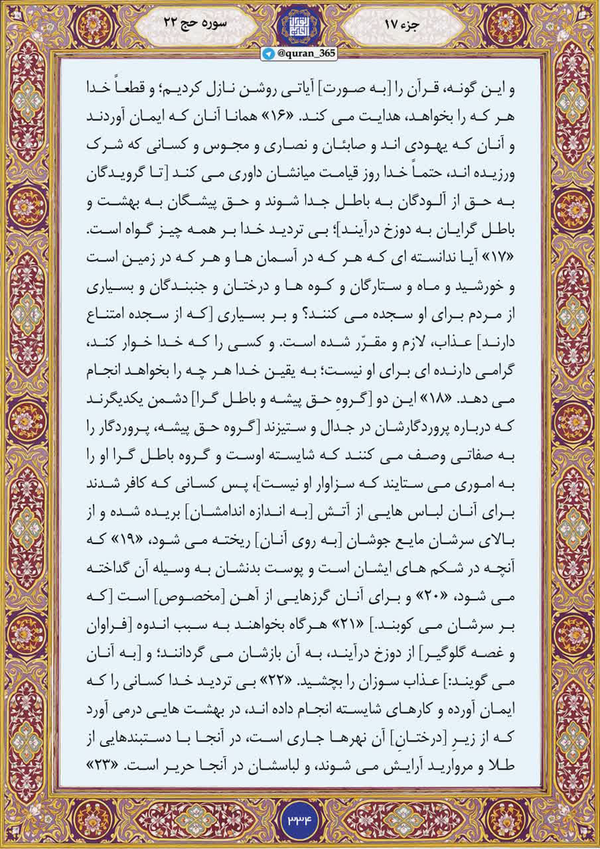 جزء ۱۷
سوره حج ۲۲
@quran_365
و این گونه، قرآن را [به صورت] آیاتی روشن نازل کردیم؛ و قطعاً خدا
هر که را بخواهد، هدایت می کند. «۱۶» همانا آنان که ایمان آوردند
و آنان که یهودی اند و صابئان و نصاری و مجوس و کسانی که شرک
ورزیده اند، حتماً خدا روز قیامت میانشان داوری می کند [تا گرویدگان
به حق از آلودگان به باطل جدا شوند و حق پیشگان به بهشت و
باطل گرایان به دوزخ درآیند]؛ بی تردید خدا بر همه چیز گواه است.
«۱۷» آیا ندانسته ای که هر که در آسمان ها و هر که در زمین است
و خورشید و ماه و ستارگان و کوه ها و درختان و جنبندگان و بسیاری
از مردم برای او سجده می کنند؟ و بر بسیاری [که از سجده امتناع
دارند] عذاب، لازم و مقرّر شده است. و کسی را که خدا خوار کند،
گرامی دارنده ای برای او نیست؛ به یقین خدا هر چه را بخواهد انجام
می دهد. «۱۸» این دو [گروهِ حق پیشه و باطل گرا] دشمن یکدیگرند
که درباره پروردگارشان در جدال و ستیزند [گروه حق پیشه، پروردگار را
به صفاتی وصف می کنند که شایسته اوست و گروه باطل گرا او را
به اموری می ستایند که سزاوار او نیست]، پس کسانی که کافر شدند
برای آنان لباس هایی از آتش [به اندازه اندامشان] بریده شده و از
بالای سرشان مایع جوشان [به روی آنان] ریخته می شود، «۱۹» که
آنچه در شکم های ایشان است و پوست بدنشان به وسیله آن گداخته
می شود، «۲۰» و برای آنان گرزهایی از آهن [مخصوص] است [که
بر سرشان می کوبند.] «۲۱» هرگاه بخواهند به سبب اندوه [فراوان
و غصه گلوگیر] از دوزخ درآیند، به آن بازشان می گردانند؛ و [به آنان
می گویند:] عذاب سوزان را بچشید. «۲۲» بی تردید خدا کسانی را که
ایمان آورده و کارهای شایسته انجام داده اند، در بهشت هایی درمی آورد
که از زیرِ [درختانِ] آن نهرها جاری است، در آنجا با دستبندهایی از
طلا و مروارید آرایش می شوند، و لباسشان در آنجا حریر است. «۲۳»
۳۳۴